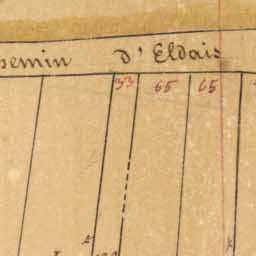 emin d'Eldais
33 65 65